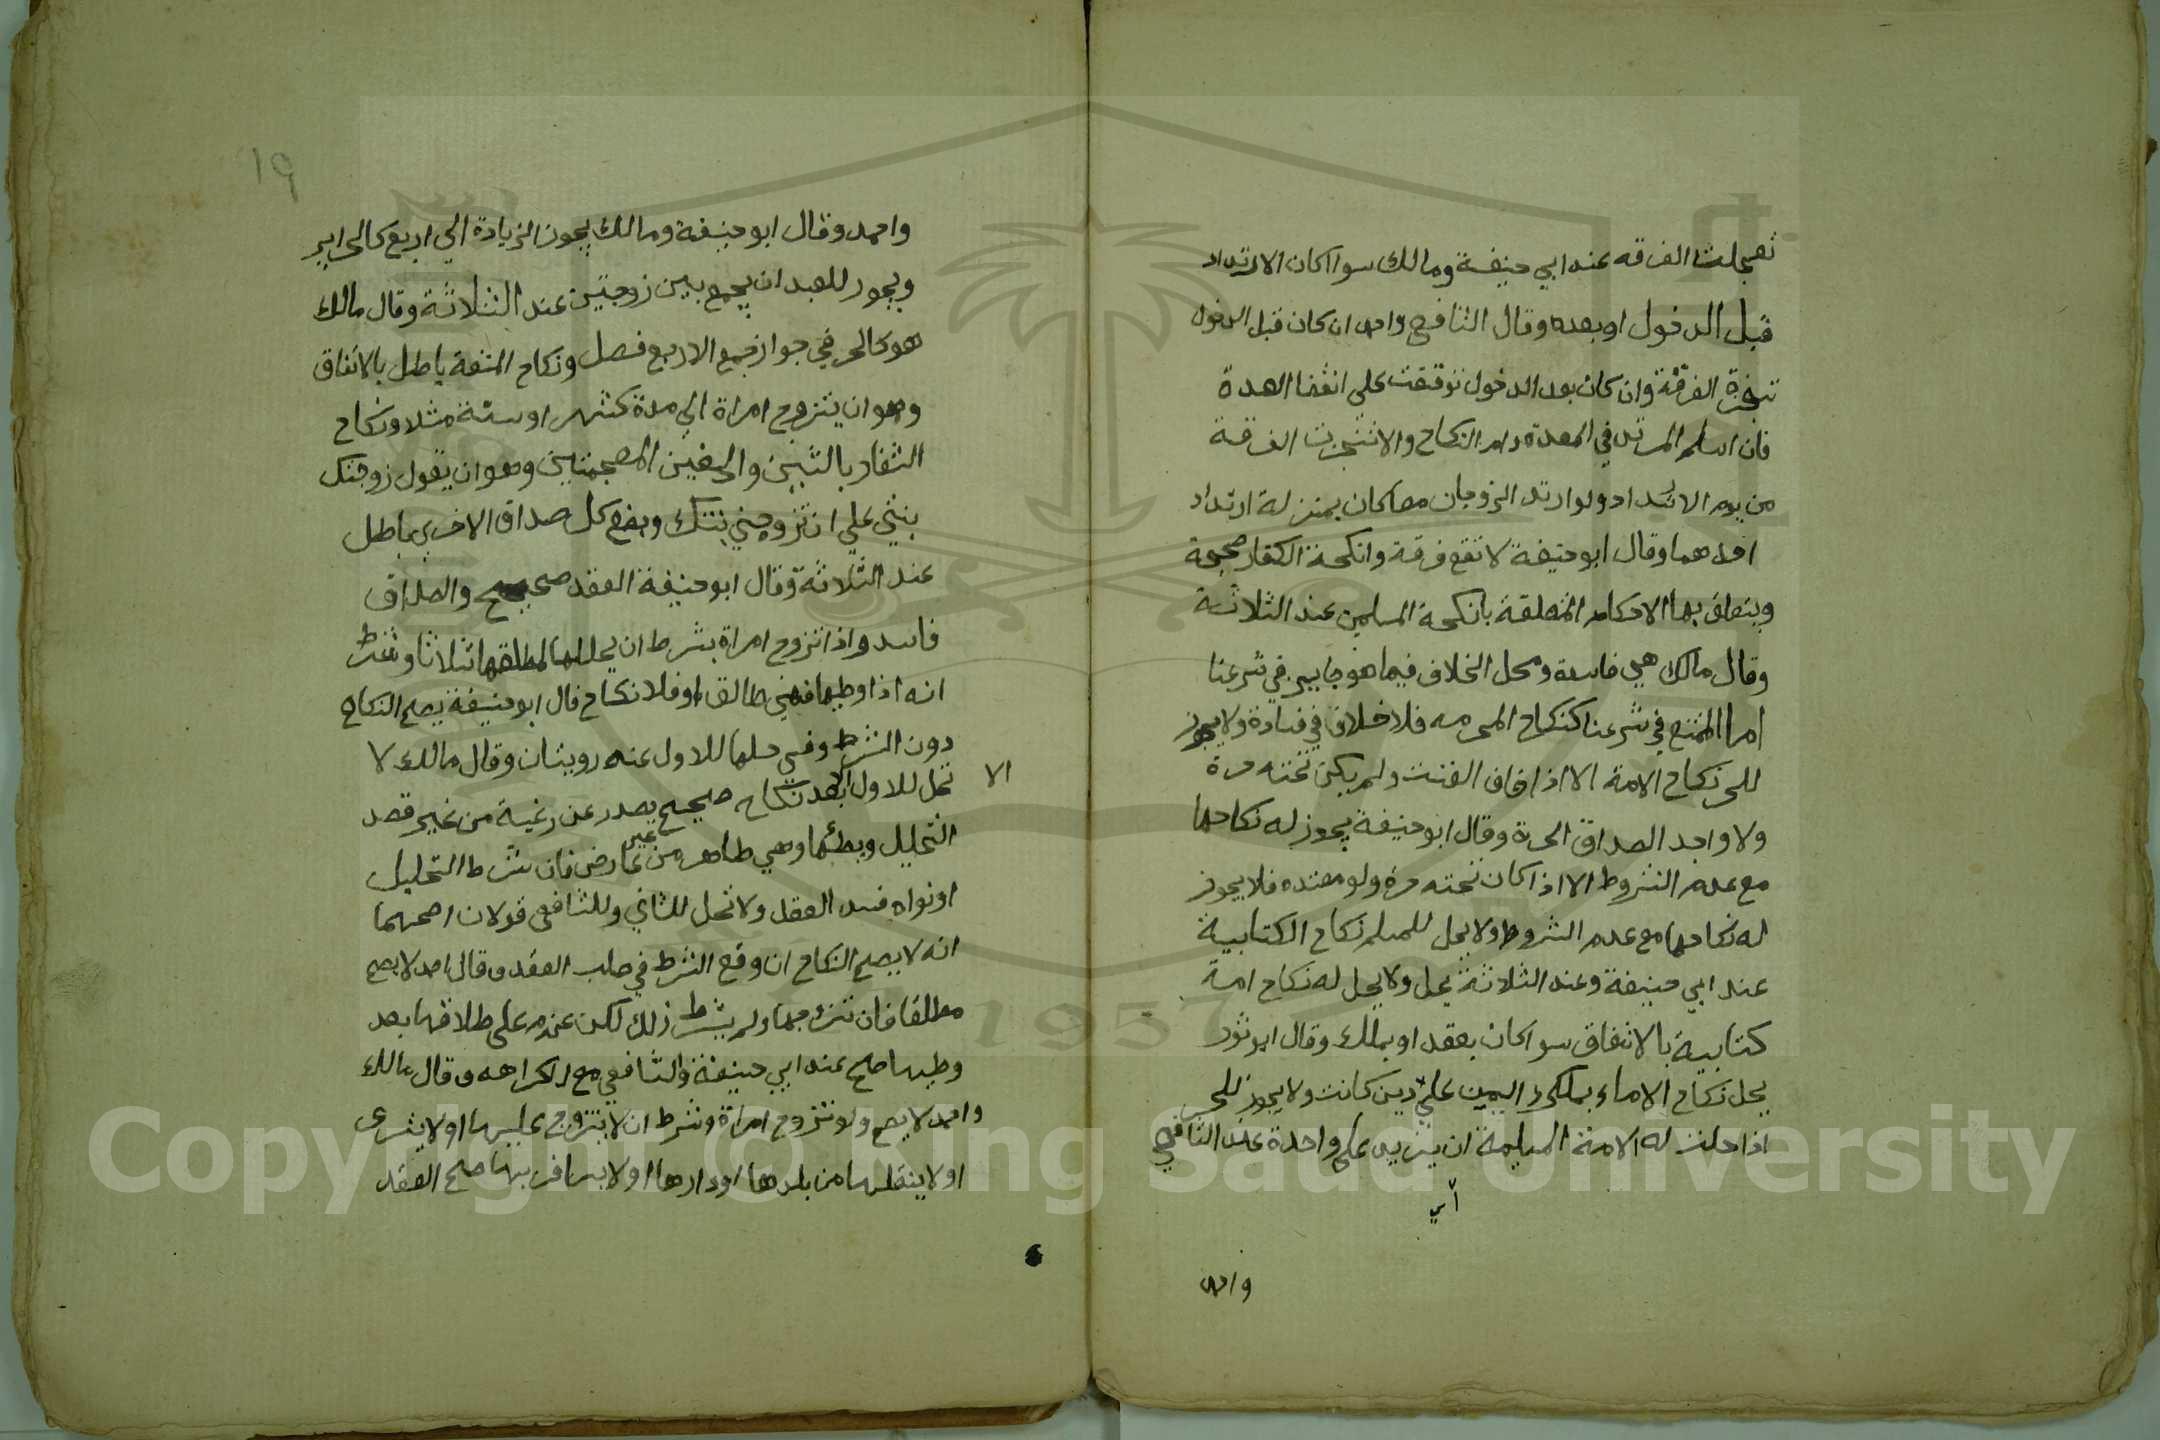 تعجلت الفرقه عند ابي حنيفة ومالك سوا كان الارتداد
قبل الدخول او بعده وقال الشافعي واحمد ان كان قبل الدخول
تنجزة الفرقة وان كان بعد الدخول توقفت علي انقضا العدة
فان اسلم المرتد في العدة دام النكاح والا تنجزت الفرقة
من يوم الارتداد ولو ارتد الزوجان معا كان بمنزلة ارتداد
احدهما وقال ابو حنيفة لا تقع فرقة وانكحة الكفار صحيحة
ويتعلق بها الاحكام المتعلقة بانكحة المسلمين عند الثلاثة
وقال مالك هي فاسدة ومحل الخلاف فيما هو جايز في شرعنا
اما الممتنع في شرعنا كنكاح المحرمه فلا خلاف في فساده ولا يجوز
للحر نكاح الامة الا اذا خاف العنت ولم يكن تحته حرة
ولا واجد الصداق الحرة وقال ابو حنيفة يجوز له نكاحها
مع عدم الشروط الا اذا كان تحته حرة ولو معتده فلا يجوز
له نكاحها مع عدم الشروط ولا يحل للمسلم نكاح الكتابية
عند ابي حنيفة وعند الثلاثة يحل ولا يحل له نكاح امة
كتابية بالاتفاق سوا كان بعقد او بملك وقال ابو ثور
يحل نكاح الاماء بملك اليمين علي دين كانت ولا يجوز للحر
اي
اذا حلت له الامة المسلمة ان يزيد علي واحدة عند الشافعي
واحمد
١٩
واحمد وقال ابو حنيفة ومالك يجوز الزيادة الي اربع كالحراير
ويجوز للعبد ان يجمع بين زوجتين عند الثلاثة وقال مالك
هو كالحر في جواز جمع الاربع فصل ونكاح المتعة باطل بالاتفاق
وهو ان يتزوج امراة الي مدة كشهر او سنة مثلا ونكاح
الشغار بالشين والغين المعجمتين وهو ان يقول زوجتك
بنتي علي ان تزوجني بنتك وبضع كل صداق الاخري باطل
عند الثلاثة وقال ابو حنيفة العقد صحيح والصداق
فاسد واذا تزوج امراة بشرط ان يحللها لمطلقها ثلاثا وشرط
انه اذا وطيها فهي طالق او فلا نكاح قال ابو حنيفة يصح النكاح
دون الشرط وفي حلها للاول عنه روبتان وقال مالك لا
الا
تحل للاول الا بعد نكاح صحيح يصدر عن رغبة من غير قصد
التحليل ويطئها وهي طاهر من غير عارض فان شرط التحليل
او نواه فسد العقد ولا تحل للثاني وللشافعي قولان اصحهما
انه لا يصح النكاح ان وقع الشرط في صلب العقد وقال احمد لا يصح
مطلقا فان تزوجها ولم يشرط ذلك لكن عزم علي طلاقها بعد
وطيها صح عند ابي حنيفة والشافعي مع الكراهه وقال مالك
واحمد لا يصح ولو تزوج امراة وشرط ان لا يتزوج عليها او لا يتسرى
او لا ينقلها من بلدها او دارها او لا يسافر بها صح العقد
Copyright © King Saud University
1957